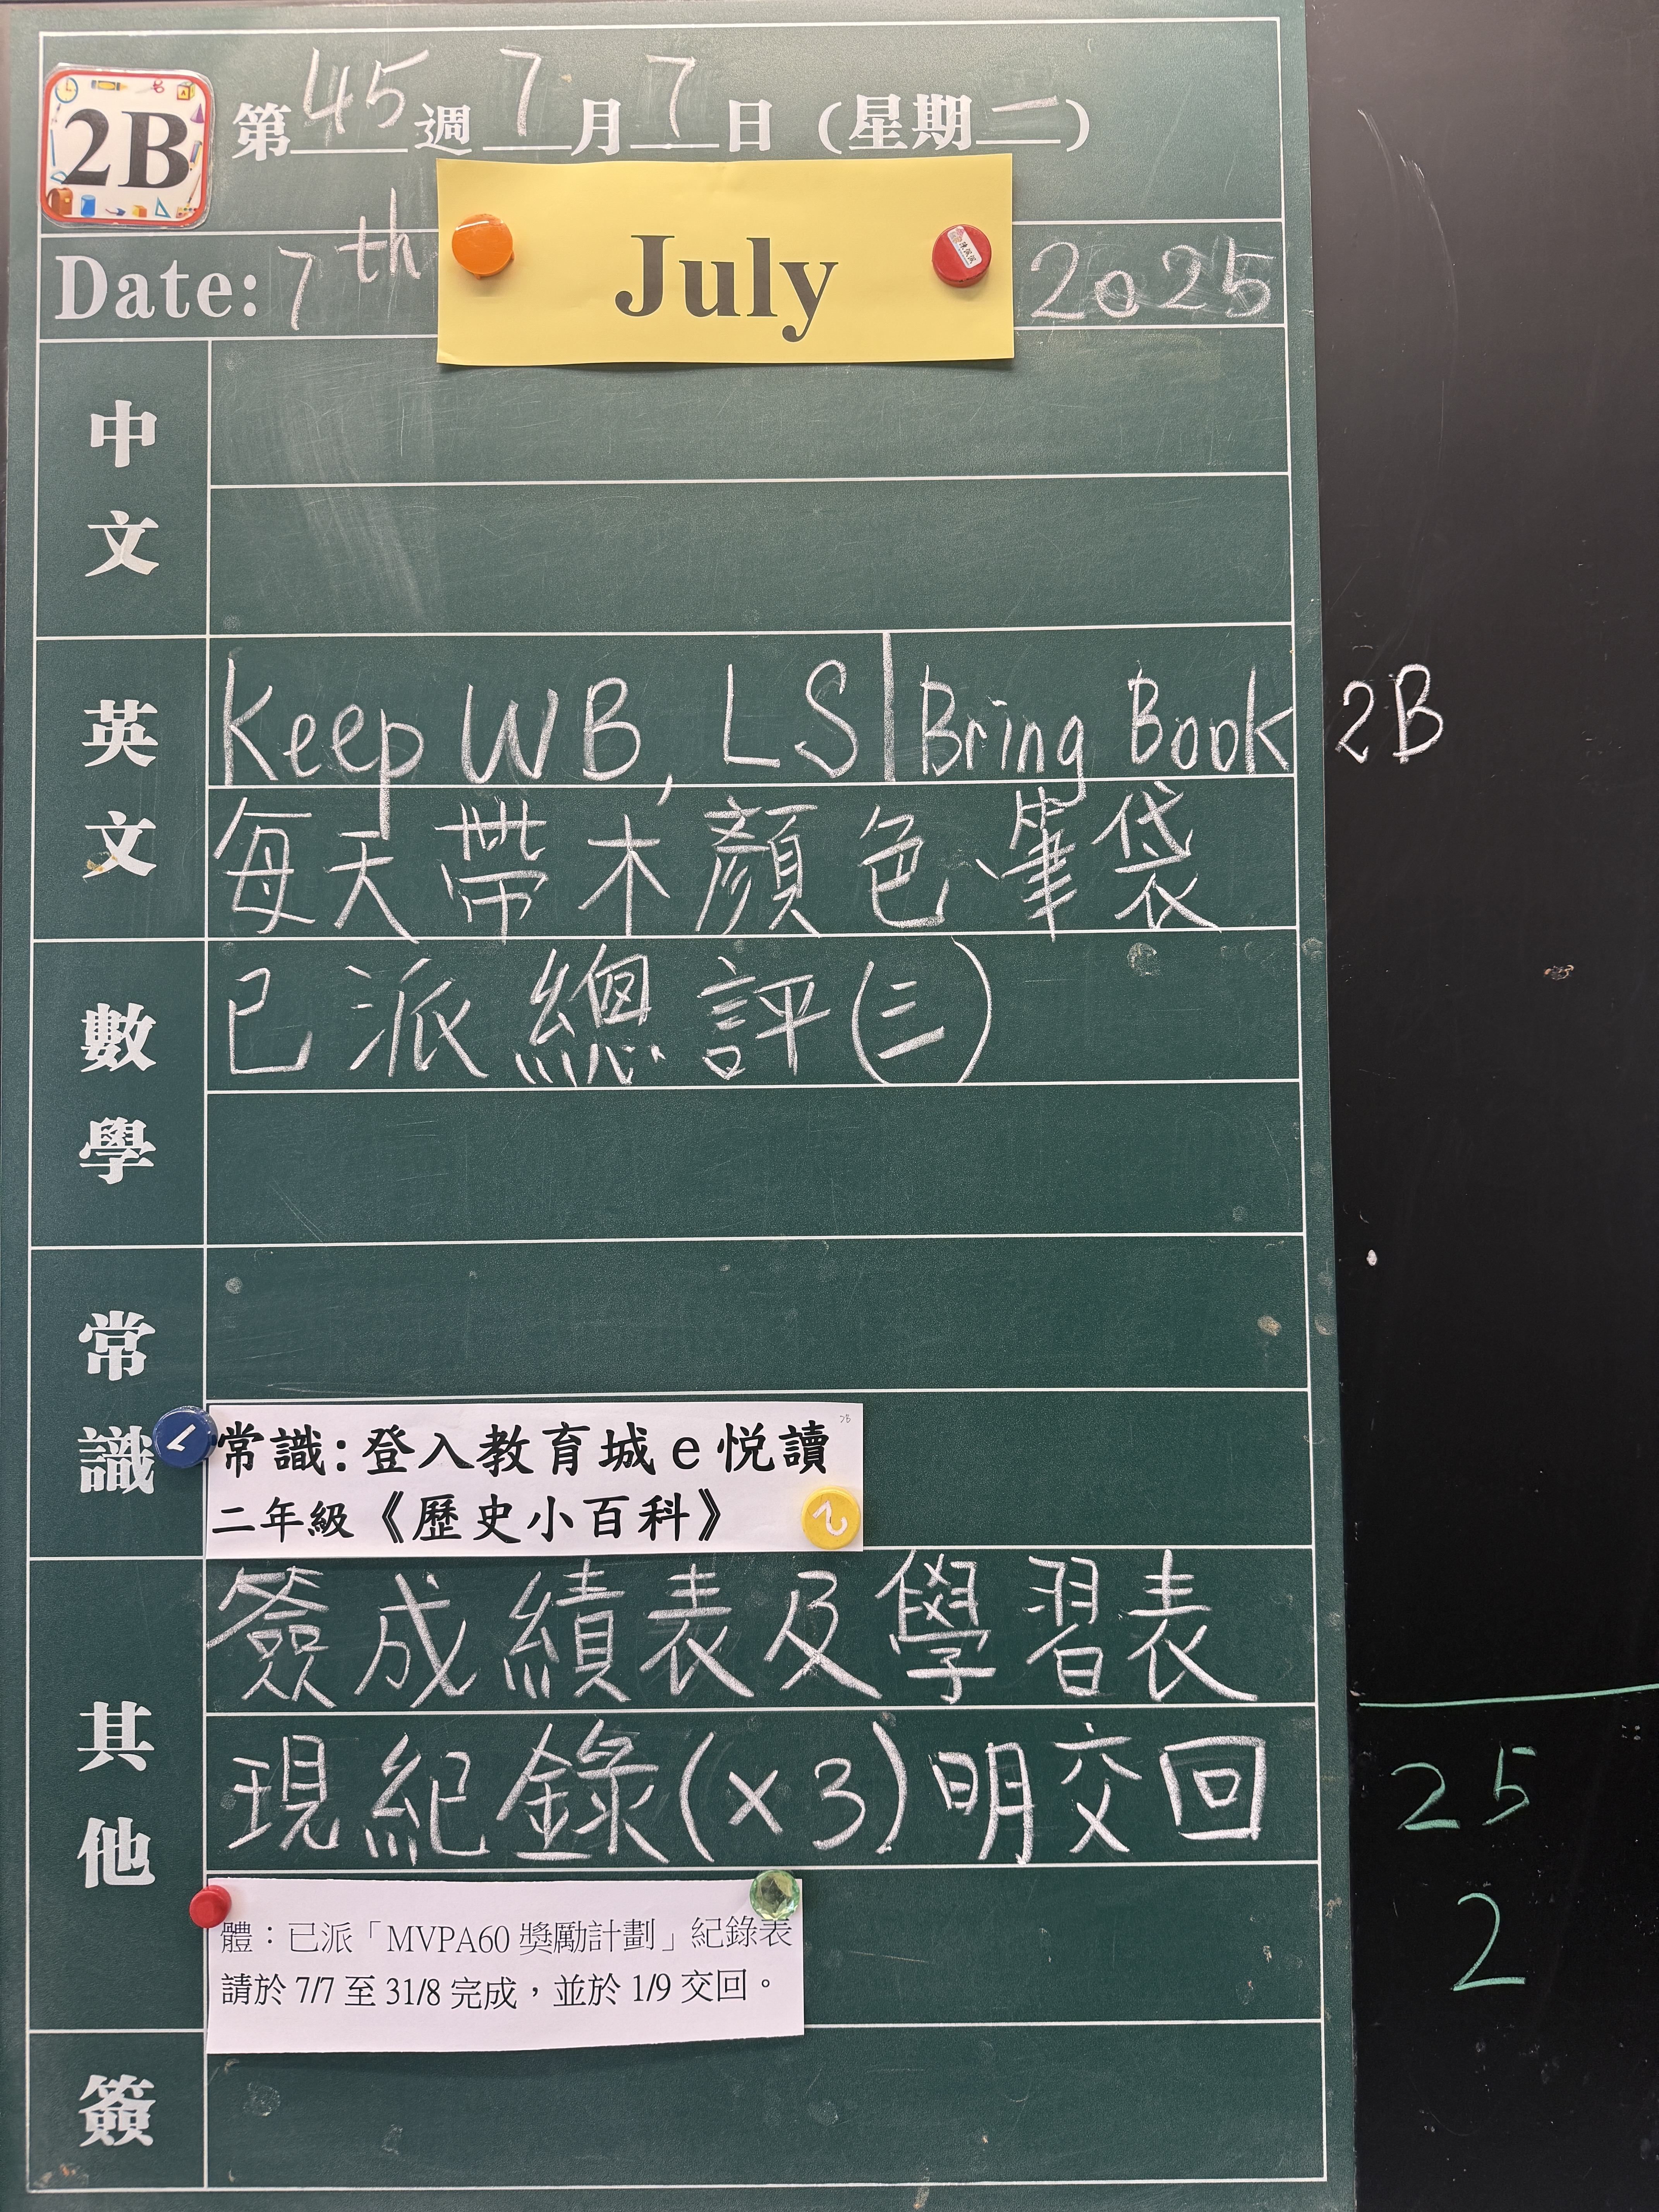 2B 第45週 7月7日（星期一）
Date: 7th July 2025
中文
英文
Keep WB, LS | Bring Book 2B
每天帶木顏色、筆袋
數學
已派總評(三)
常識
常識:登入教育城e悅讀
二年級《歷史小百科》
其他
簽成績表及學習表
現紀錄(×3)明交回
體：已派「MVPA60獎勵計劃」紀錄表
請於 7/7 至 31/8 完成，並於 1/9 交回。
簽
25
2